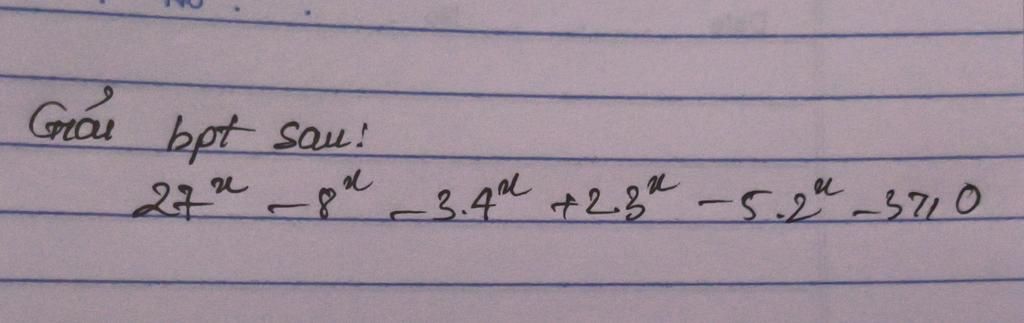 No . .
Giải bpt sau:
27^x - 8^x - 3.4^x + 2.3^x - 5.2^x - 3 ≥ 0